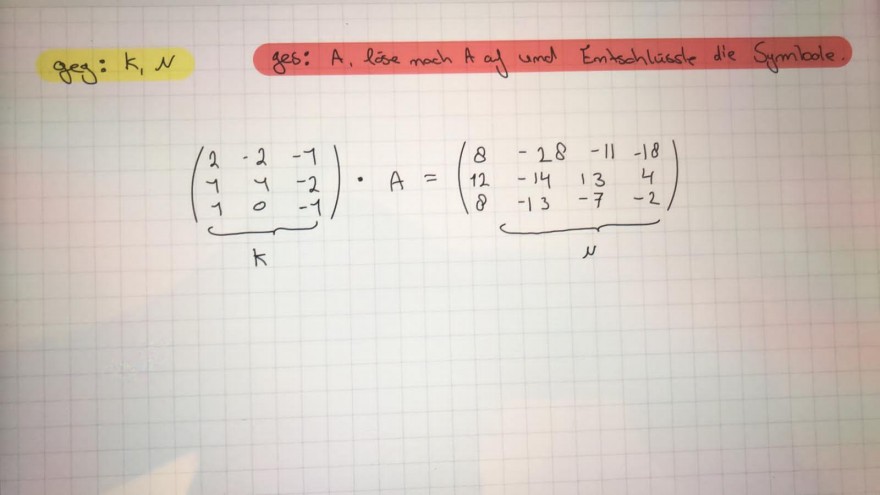 geg: K, N
ges: A, löse nach A auf und Entschlüssle die Symbole.
( 2 -2 -1 ) ( 8 -28 -11 -18 )
( 1 1 -2 ) · A = ( 12 -14 13 4 )
( 1 0 -1 ) ( 8 -13 -7 -2 )
K N